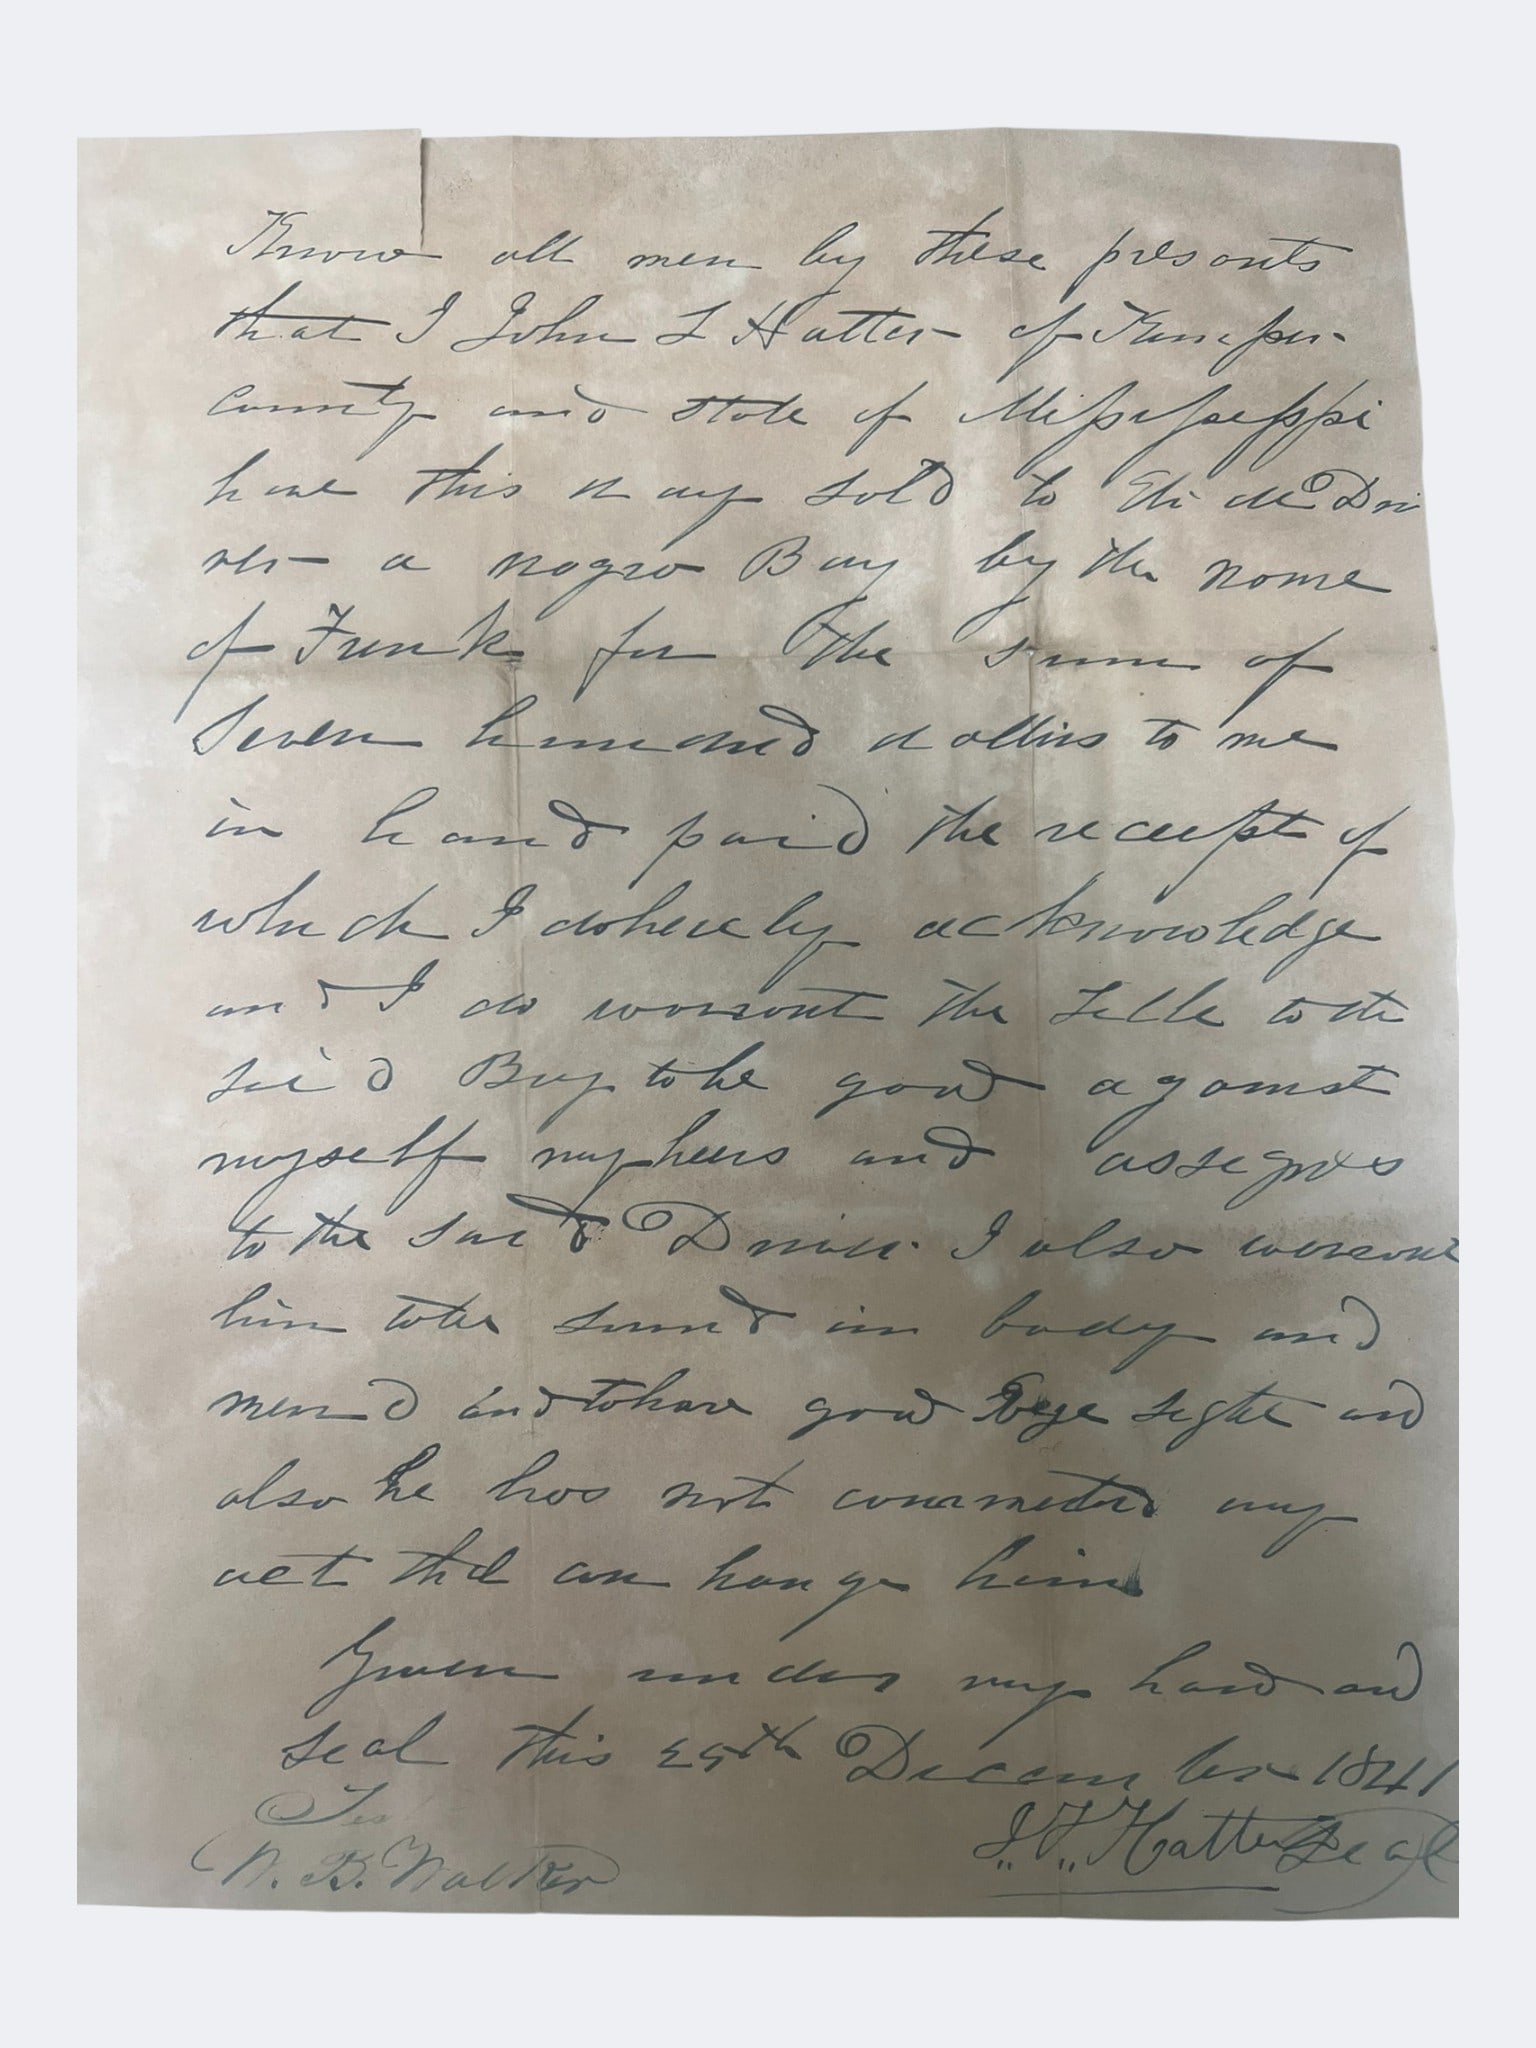 Know all men by these presents
that I John L Hatter of Kemper
county and state of Mississeppi
have this day sold to Eli McDri
ver a negro Boy by the name
of Frank for the sum of
Seven hundred dollers to me
in hand paid the receipt of
which I do hereby acknowledge
and I do warrant the title to the
said Boy to be good against
myself my heirs and assegns
to the said Driver I also warrant
him to be sound in body and
mend and to have good Eye sight and
also he has not commeted any
act that can hange him
Given under my hand and
seal this 25th December 1841
Tes
J,, F,, Hatter Seal
W. B. Walker